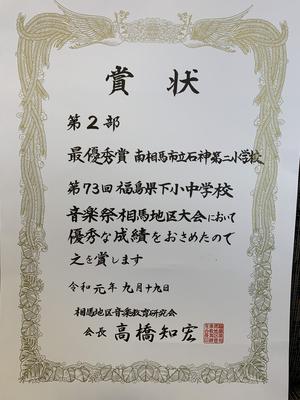 賞状
第2部
最優秀賞 南相馬市立石神第二小学校
第73回福島県下小中学校
音楽祭相馬地区大会において
優秀な成績をおさめたので
之を賞します
令和元年九月十九日
相馬地区音楽教育研究会
会長 高橋知宏